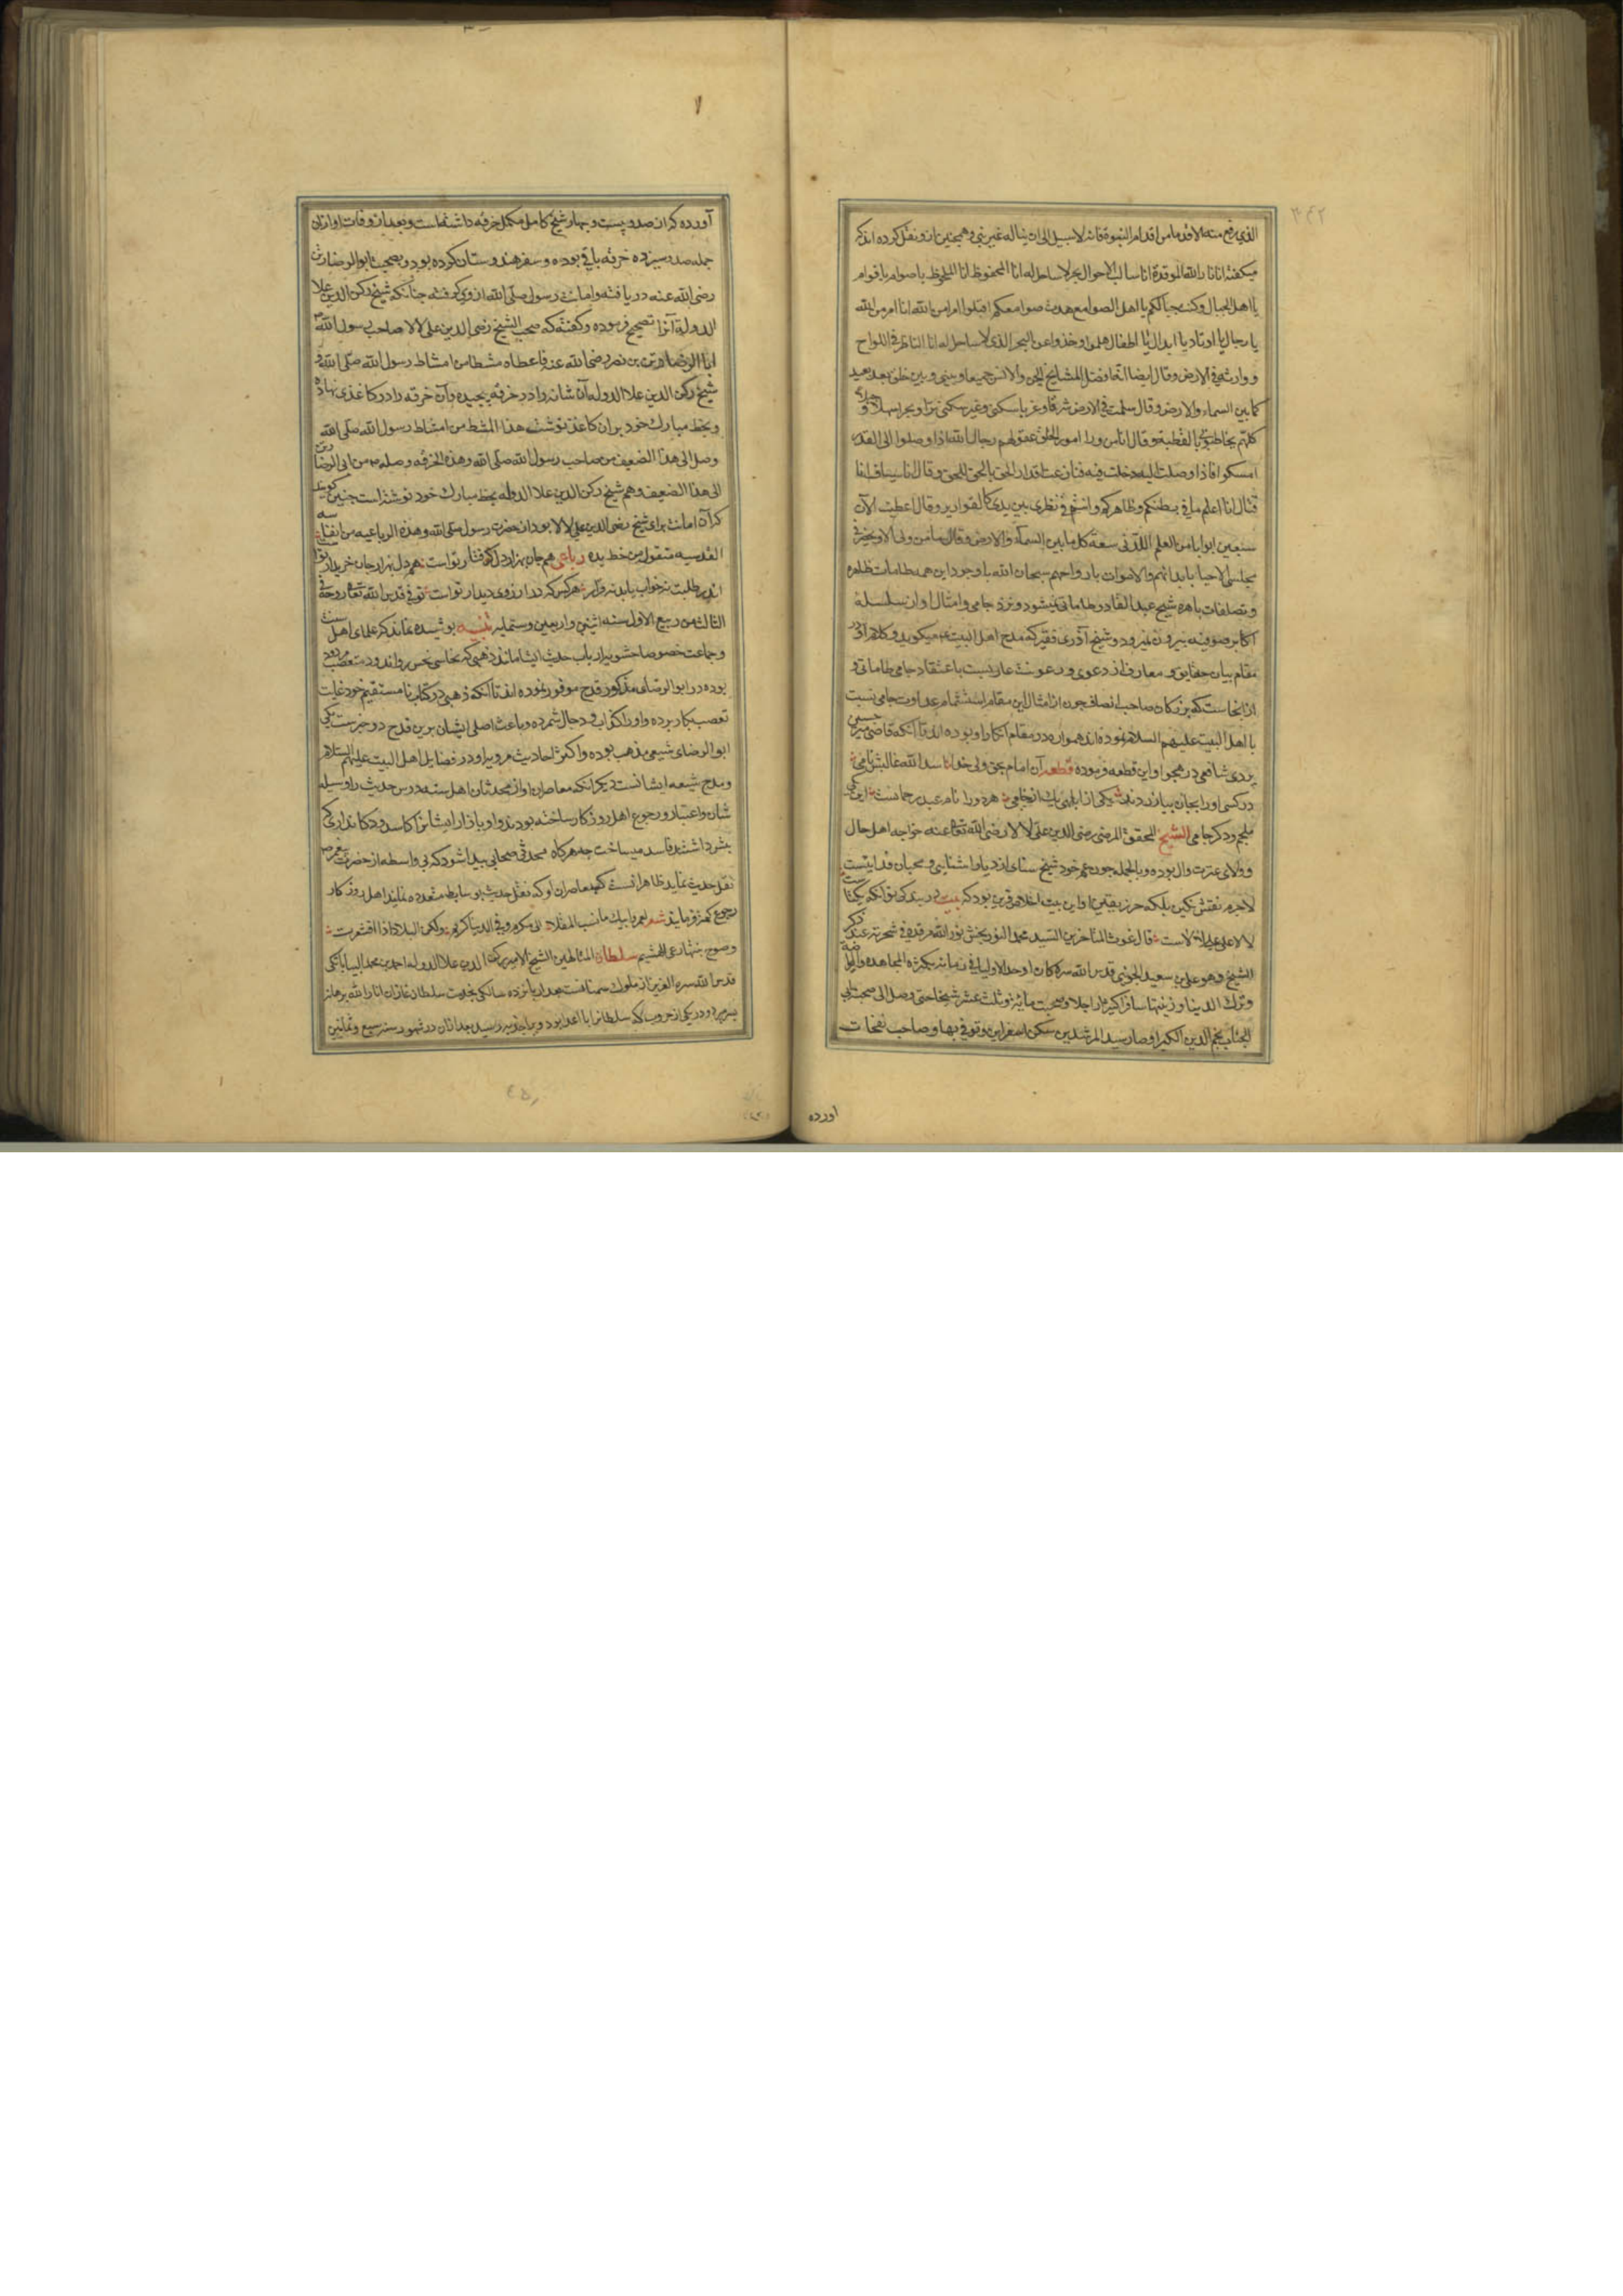 الذی رفع منه الاقدما من اقدام النبوة فانه لا سبیل الی ان یناله غیر نبی و همچنین ازو نقل کرده اند که
میکفته انا نار الله الموقدة انا سالب الاحوال بحر لا ساحل له انا المحفوظ انا الملحوظ یا صوام یا قوام
یا اهل الجبال دکت جبالکم یا اهل الصوامع هدمت صوامعکم اقبلوا الی امر من الله انا امر من الله
یا رجال یا اوتاد یا ابدال یا اطفال هلموا و خذوا عن البحر الذی لا ساحل له انا الناظر فی اللواح
و وارثه فی الارض و قال ایضا الجن و الانس جمیعا و بینی و بین خلق بعد بعید
کما بین السماء و الارض و قال سلمت فی الارض شرقا و غربا سکنی و غیر سکنی برا و بحرا سهلا و
کلهم یخاطبونی بالقطبة و قال انا من وراء امور الخلق عقولهم رجال الله اذا وصلوا الی القدر
امسکوا انا اذا وصلت الیه دخلت فیه فنازعت اقدار الحق بالحق للحق و قال انا سیاف انا
قتال انا اعلم ما فی بطنکم و ظاهرکم و انتم فی نظری بین یدی کالقواریر و قال اعطیت الآن
سبعین بابا من العلم اللدنی سعة کل ما بین السماء و الارض و قال ما من ولی الا و یحضر فی
مجلسی الاحیا بابدانهم و الاموات بارواحهم سبحان الله با وجود این همه طامات ظاهره
و تصلفات باهره شیخ عبد القادر طاماتی نمیشود و نزد جامی و امثال او از سلسله
اکابر صوفیه بیرون نمیرود و شیخ آذری فقیر که مدح اهل البیت میکوید و کلام او در
مقام بیان حقایق و معارف از دعوی و رعونت عاریست باعتقاد جامی طاماتی و
از اینجاست که بزرکان صاحب انصاف چون از امثال این مقام استشمام عداوت جامی نسبت
با اهل البیت علیهم السلام نموده اند همواره در مقام انکار او بوده اند تا آنکه قاضی میر حسین
یزدی شافعی در هجو او این قطعه فرموده قطعه آن امام بحق ولی خدا اسد الله غالبش نامی
دو کس او را بجان بیازردند یکی از ابلهی یک از خامی هر دو را نام عبد رحمانست این یکی
ملجم و دکر جامی الشیخ المحقق المرضی رضی الدین علی لالا رضی الله تعالی عنه خواجه اهل حال
و والای عترت و آل بوده و بالجمله چون عم خود شیخ سنائی از دیار آشنایی و محبان فدائیست
لاجرم نقش نکین بلکه حرز یقین او این بیت اخلاص قرین بود که بیت
لالا علی علی لالاست قال غوث المتاخرین السید محمد النوربخش نور الله مرقده فی شجرته عند ذکر
الشیخ و هو علی بن سعید الجوینی قدس الله سره کان اوحد الاولیا فی زمانه بکثرة المجاهده و الریاضة
و ترک الدنیا و زینتها سافر اکثیرا راجلا و صحب مائة و ثلث عشر شیخا حتی وصل الی صحبة
الجناب نجم الدین الکبرا و صار سید المرشدین سکن اسفراین و توفی بها و صاحب نفحات
اورده
آورده که از صد و بیست و چهار شیخ کامل مکمل خرقه داشته است و بعد از وفات او از ان
جمله صد و سیزده خرقه باقی بوده و سفر هندوستان کرده بود و بصحبت ابو الرضا رتن
رضی الله عنه دریافته و امانت رسول صلی الله از وی کرفته چنانکه شیخ رکن الدین علا
الدوله آنرا تصحیح فرموده و کفته که صحب الشیخ رضی الدین علی لالا صاحب رسول الله
ابا الرضا رتن بن نصر رضی الله عنه فاعطاه مشطا من امشاط رسول الله صلی الله و
شیخ رکن الدین علا الدوله آن شانه را در خرقه پیچیده و آن خرقه را در کاغذی نهاده
و بخط مبارک خود بر ان کاغذ نوشته هذا المشط من امشاط رسول الله صلی الله
وصل الی هذا الضعیف من صاحب رسول الله صلی الله و هذه الخرقه وصله من ابی الرضا رتن
الی هذا الضعیف و هم شیخ رکن الدین علا الدوله بخط مبارک خود نوشته است چنین کویند
که آن امانت برای شیخ رضی الدین علی لالا بود از حضرت رسول صلی الله و هذه الرباعیه من انفاسه
القدسیه منقول من خط یده رباعی هم جان بهزار دل کرفتار تو است هم دل بهزار جان خریدار تو است
اندر طلبت نه خواب یابد نه قرار هر کس که در آرزوی دیدار تو است توفی قدس الله تعالی روحه فی
الثالث من ربیع الاول سنه اثنین و اربعین و ستمایه تنبیه پوشیده نماند که علمای اهل سنت
و جماعت خصوصا حشویه ارباب حدیث ایشان مانند ذهبی که نخاسی نحس روان و مردود متعصب
بوده در ابو الرضای مذکور قدح موفور نموده اند تا آنکه ذهبی در کتاب نامستقیم خود غایت
تعصب بکار برده و او را کذاب و دجال شمرده و باعث اصلی ایشان برین قدح دو چیزست یکی
ابو الرضای شیعی مذهب بوده و اکثر احادیث مرویه او در فضایل اهل البیت علیهم السلام
و مدح شیعه ایشانست دیکر آنکه معاصران او از محدثان اهل سنه درس حدیث را وسیله
شان و اعتبار و رجوع اهل روزکار ساخته بودند و او بازار ایشانرا کاسد و دکانداری که
بشر داشتند فاسد میساخت چه هرکاه محدثی صحابی پیدا شود که بی واسطه از حضرت پیغمبر ص
نقل حدیث نماید ظاهر انست که بمعاصران او که نقل حدیث بوسایط متعدده نمایند اهل روزکار
رجوع کمتر فرمایند شعر لعمر ابیک ما نسب المعلی الی کرم و فی الدنیا کریم ولکن البلاد اذا اقشعرت
و صوح نبتها رعی الهشیم سلطان المتالهین الشیخ الامیر رکن الدین علا الدوله احمد بن محمد البیابانکی
قدس الله سره العزیز از ملوک سمنانست بعد از پانزده سالکی بخدمت سلطان غازان انار الله برهانه
بسر می برد و در یکی از حروب که سلطانرا با اعدا بود و برا جذبه رسید بعد از ان در شهور سنه سبع و ثمانین